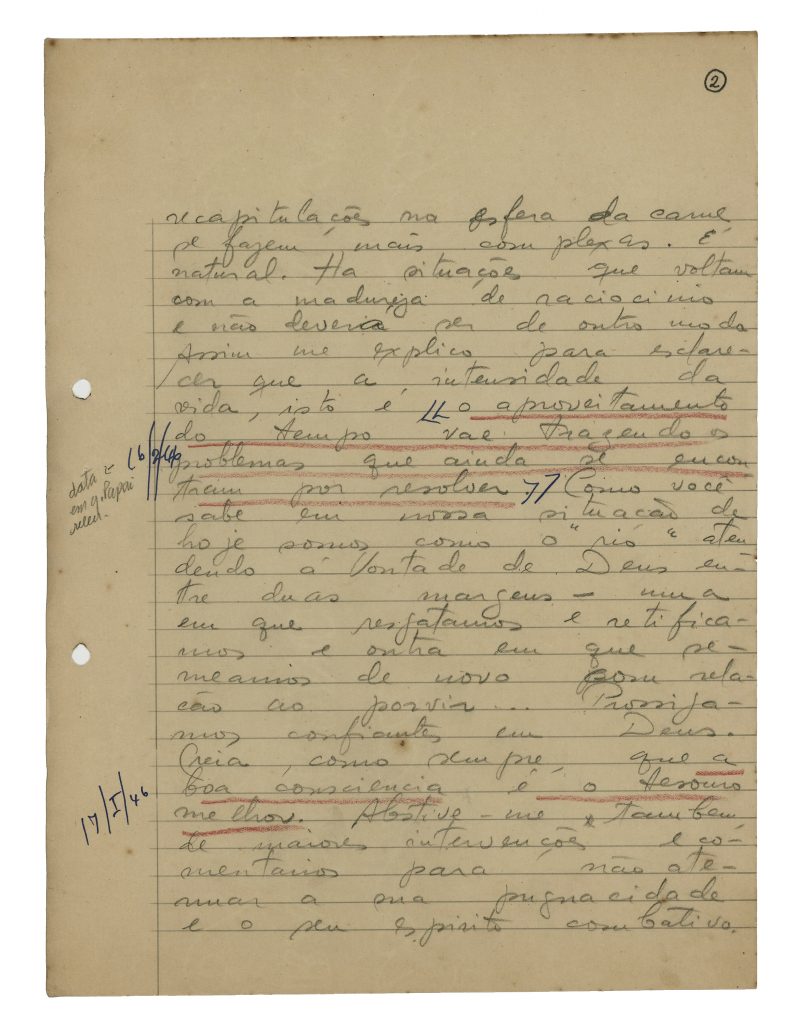 2
recapitulações na esfera da carne
se fazem mais complexas. É
natural. Ha situações que voltam
com a madureza de raciocinio
e não deveria ser de outro modo
Assim me explico para esclare-
cer que a intensidade da
vida, isto é, "o aproveitamento
do tempo vae trazendo os
problemas que ainda se encon
tram por resolver" Como você
sabe em nossa situação de
hoje somos como o "rio" aten
dendo á Vontade de Deus en-
tre duas margens - uma
em que resgatamos e retifica-
mos e outra em que se-
meamos de novo com rela-
cão ao porvir... Prossiga-
mos confiantes em Deus.
Creia, como sempre, que a
boa consciencia é o tesouro
melhor. Abstive-me tambem
de maiores intervenções e co-
mentarios para não ate-
nuar a sua pugnacidade
e o seu espirito combativo.
data
em q. Papai
releu.
17/I/46